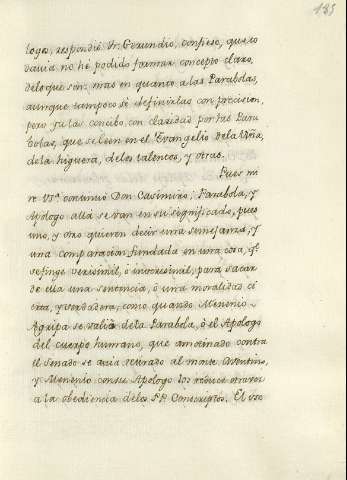 185
loges, respondió Fr. Gerundio, confieso, que to
davia no hé podido formar concepto claro,
de lo que sin; mas en quanto a las Parabolas,
aunque tampoco sé definirlas con precision,
pero ya las concibo con claridad por las Para
bolas, que se leen en el Evangelio de la Viña,
de la higuera, de los talentos, y otras.
Pues mi
re Vm. continuó Don Casimiro: Parabola, y
Apologo allá se van en su significado, pues
uno, y otro quieren decir una semejanza, y
una comparacion fundada en una cosa, qe.
se finge verisimil, ó inverisimil, para sacar
de ella una sentencia, ó una moralidad ci
erta, y verdadera, como quando Menenio
Agripa se valió de la Parabola, ó el Apologo
del cuerpo humano, que amotinado contra
el Senado se avia retirado al monte Aventino,
y Menenio con su Apologo los reduce
a la obediencia de los PP. Conscriptos. El uso